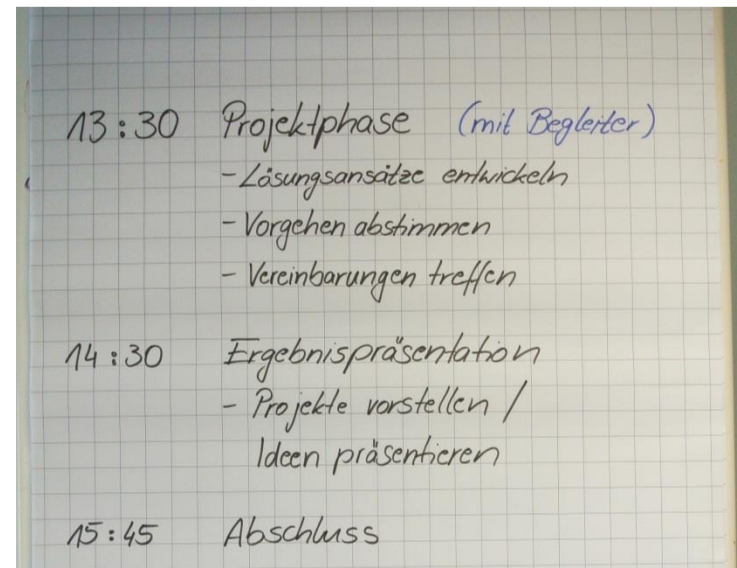 13:30 Projektphase (mit Begleiter)
- Lösungsansätze entwickeln
- Vorgehen abstimmen
- Vereinbarungen treffen
14:30 Ergebnispräsentation
- Projekte vorstellen /
Ideen präsentieren
15:45 Abschluss